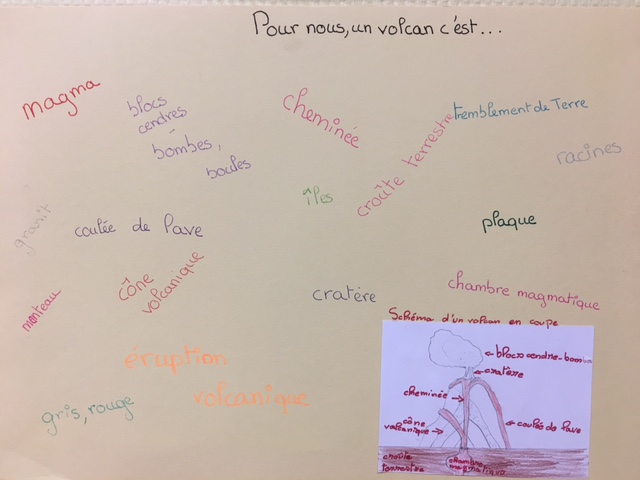 Pour nous, un volcan c'est...
magma
blocs
cendres
-
bombes,
boules
cheminée
tremblement de Terre
croûte terrestre
racines
granit
coulée de lave
îles
plaque
manteau
cône
volcanique
cratère
chambre magmatique
éruption
volcanique
gris, rouge
Schéma d'un volcan en coupe
blocs cendre-bombe
cratère
cheminée
cône
volcanique
coulée de lave
croûte
terrestre
chambre
magmatique